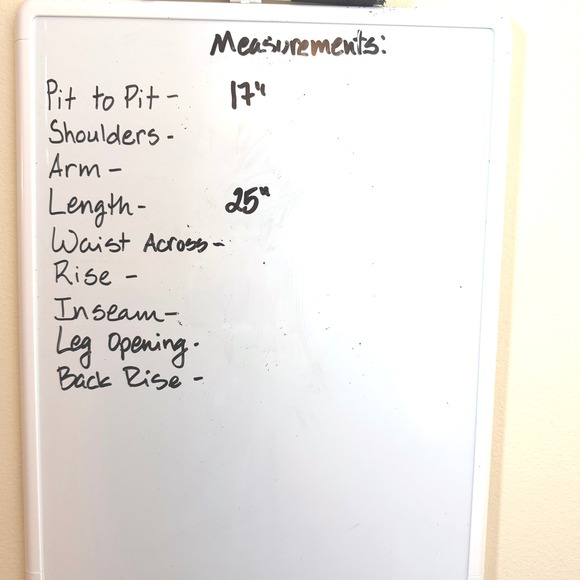 Measurements:
Pit to Pit - 17"
Shoulders -
Arm -
Length - 25"
Waist Across -
Rise -
Inseam -
Leg Opening -
Back Rise -